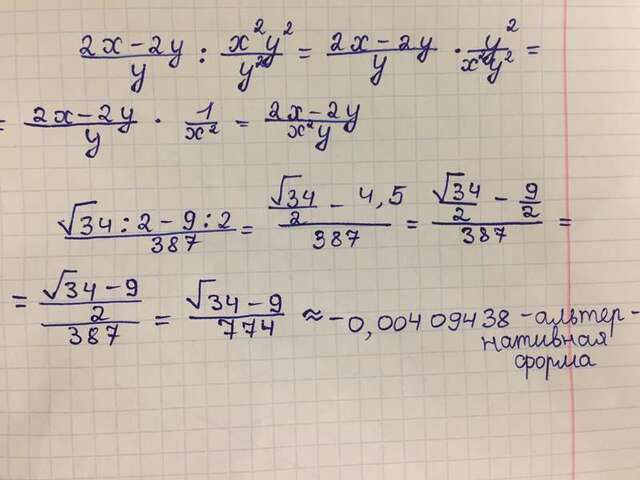 (2x-2y)/y : (x²y²)/y² = (2x-2y)/y · y²/(x²y²) =
= (2x-2y)/y · 1/x² = (2x-2y)/(x²y)
(√34:2-9:2)/387 = (√34/2 - 4,5)/387 = (√34/2 - 9/2)/387 =
= ((√34-9)/2)/387 = (√34-9)/774 ≈ -0,00409438 -альтер-
нативная
форма